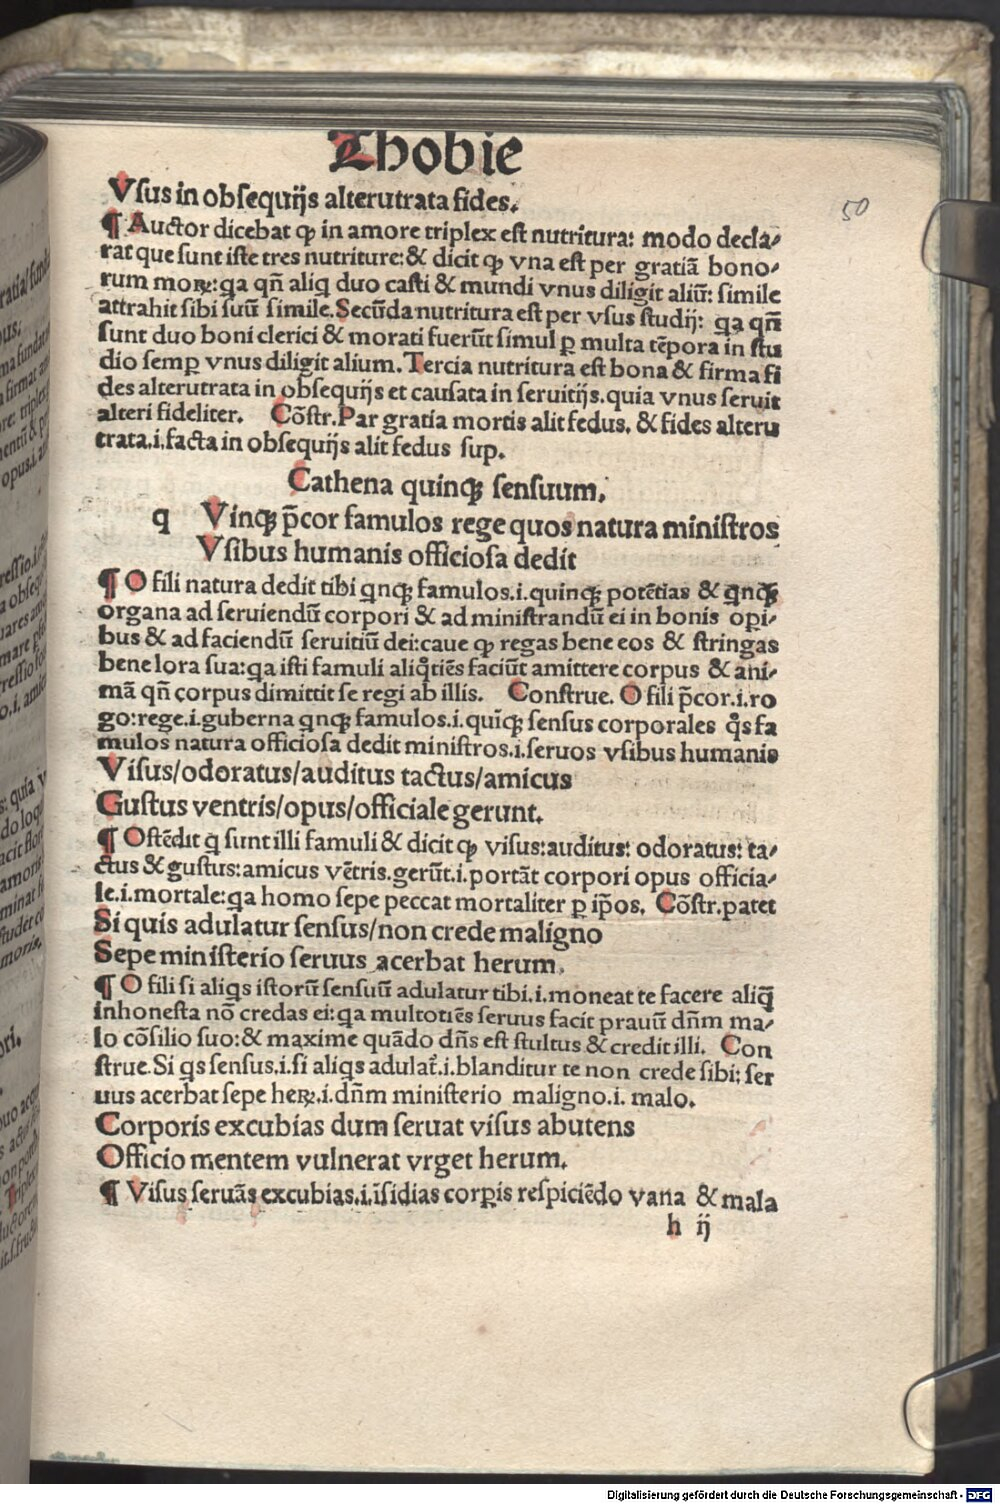 Thobie
50
Vsus in obsequijs alterutrata fides.
¶ Auctor dicebat ꝙ in amore triplex est nutritura: modo decla⸗
rat que sunt iste tres nutriture:& dicit ꝙ vna est per gratiā bono⸗
rum moꝝ:qa qñ aliq̄ duo casti & mundi vnus diligit aliū: simile
attrahit sibi suū simile.Secūda nutritura est per vsus studij: qa qñ
sunt duo boni clerici & morati fuerūt simul ꝑ multa tēpora in stu
dio semꝑ vnus diligit alium. Tercia nutritura est bona & firma fi
des alterutrata in obsequijs et causata in seruitijs.quia vnus seruit
alteri fideliter. Cōstr.Par gratia mortis alit fedus. & fides alteru
trata.i.facta in obsequijs alit fedus sup.
Cathena quinqꝫ sensuum.
q Vinqꝫ p̄cor famulos rege quos natura ministros
Vsibus humanis officiosa dedit
¶ O fili natura dedit tibi qnqꝫ famulos.i.quinqꝫ potētias & qnqꝫ
organa ad seruiendū corpori & ad ministrandū ei in bonis oꝑi⸗
bus & ad faciendū seruitiū dei:caue ꝙ regas bene eos & stringas
bene lora sua:qa isti famuli aliqͥtiēs faciūt amittere corpus & ani⸗
mā qñ corpus dimittit se regi ab illis. Construe. O fili p̄cor.i.ro
go:rege.i.guberna qnqꝫ famulos.i.quīqꝫ sensus corporales qͦs fa
mulos natura officiosa dedit ministros.i.seruos vsibus humanis
Visus/odoratus/auditus tactus/amicus
Gustus ventris/opus/officiale gerunt.
¶ Ostēdit q̄ sunt illi famuli & dicit ꝙ visus:auditus: odoratus: ta⸗
ctus & gustus:amicus vētris.gerūt.i.portāt corpori opus officia⸗
le.i.mortale:qa homo sepe peccat mortaliter ꝑ ip̄os. Cōstr.patet
Si quis adulatur sensus/non crede maligno
Sepe ministerio seruus acerbat herum.
¶ O fili si aliqs istorū sensuū adulatur tibi.i.moneat te facere aliq̄
inhonesta nō credas ei:qa multotiēs seruus facit prauū dñm ma⸗
lo cōsilio suo:& maxime quādo dñs est stultus & credit illi. Con
strue.Si qs sensus.i.si aliqs adulat̄.i.blanditur te non crede sibi: ser
uus acerbat sepe heꝝ.i.dñm ministerio maligno.i. malo.
Corporis excubias dum seruat visus abutens
Officio mentem vulnerat vrget herum.
¶ Visus seruās excubias.i.īsidias corꝑis respiciēdo vana & mala
h ij
Digitalisierung gefördert durch die Deutsche Forschungsgemeinschaft - DFG